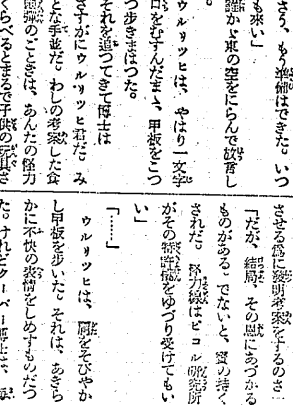 さう、もう準備はできた。いつ
も来い」
誰か、東の空をにらんで放言し
ウルリツヒは、やはり一文字
口をむすんだまゝ、甲板をこつ
つ歩きまはつた。
それを追つてきて博士は
さすがにウルリツヒ君だ。み
とな手並だ。わしの考案した食
弾のごときは、あんたの怪力
くらべるとまるで子供の玩具さ
させる為に発明考案をするのさ
「だが、結局、その恩にあづかる
ものがある。でないと、宝の持く
された。怪力線はピコル研究所
がその特許権をゆづり受けてもい
い」
「……」
ウルリツヒは、肩をそびやか
し甲板を歩いた。それは、あきら
かに不快の表情をしめすものだつ
た。けれどクーパー博士は、